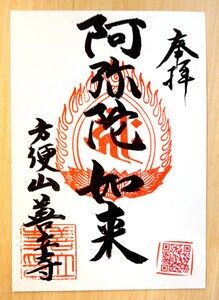 奉拝
阿弥陀如来
方便山善立寺